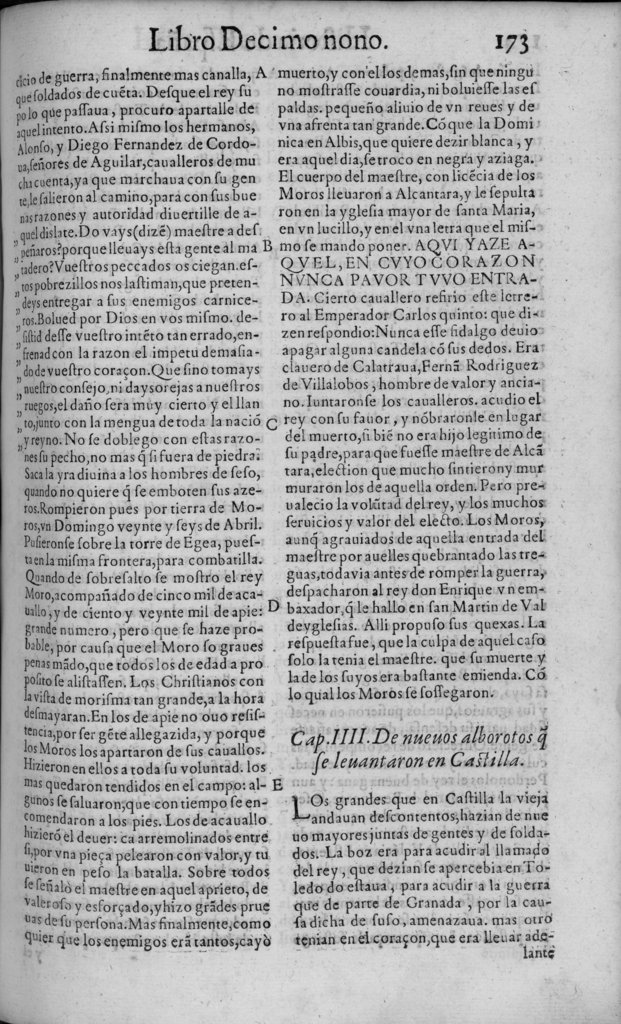 Libro Decimo nono. 173
cicio de guerra, finalmente mas canalla,
que soldados de cuẽta. Desque el rey su
po lo que passaua, procuro apartalle de
aquel intento. Assi mismo los hermanos,
Alonso, y Diego Fernandez de Cordo-
ua, señores de Aguilar, caualleros de mu
cha cuenta, ya que marchaua con su gen
te, le salieron al camino, para con sus bue
nas razones y autoridad diuertille de a-
quel dislate. Do vays (dizẽ) maestre a des
„ peñaros? porque lleuays esta gente al ma
„ tadero? Vuestros peccados os ciegan. es-
„ tos pobrezillos nos lastiman, que preten-
„ deys entregar a sus enemigos carnice-
„ ros. Bolued por Dios en vos mismo. de-
„ sistid desse vuestro intẽto tan errado, en-
„ frenad con la razon el impetu demasia-
„ do de vuestro coraçon. Que sino tomays
„ nuestro consejo, ni days orejas a nuestros
„ ruegos, el daño sera muy cierto y el llan
„ to, junto con la mengua de toda la nació
„ y reyno. No se doblego con estas razo-
nes su pecho, no mas q̃ si fuera de piedra.
Saca la yra diuina a los hombres de seso,
quando no quiere q̃ se emboten sus aze-
ros. Rompieron pues por tierra de Mo-
ros, vn Domingo veynte y seys de Abril.
Pusieronse sobre la torre de Egea, pues-
ta en la misma frontera, para combatilla.
Quando de sobresalto se mostro el rey
Moro, acompañado de cinco mil de aca-
uallo, y de ciento y veynte mil de apie:
grande numero, pero que se haze pro-
bable, por causa que el Moro so graues
penas mãdo, que todos los de edad a pro
posito se alistassen. Los Christianos con
la vista de morisma tan grande, a la hora
desmayaran. En los de apie no ouo resis-
tencia, por ser gẽte allegazida, y porque
los Moros los apartaron de sus cauallos.
Hizieron en ellos a toda su voluntad. los
mas quedaron tendidos en el campo: al-
gunos se saluaron, que con tiempo se en-
comendaron a los pies. Los de acauallo
hizierõ el deuer: ca arremolinados entre
si, por vna pieça pelearon con valor, y tu
uieron en peso la batalla. Sobre todos
se señalò el maestre en aquel aprieto, de
valeroso y esforçado, y hizo grãdes prue
uas de su persona. Mas finalmente, como
quier que los enemigos erã tantos, cayò
A
B
C
D
E
muerto, y con el los demas, sin que ningu
no mostrasse couardia, ni boluiesse las es
paldas. pequeño aliuio de vn reues y de
vna afrenta tan grande. Cõ que la Domi
nica en Albis, que quiere dezir blanca, y
era aquel dia, se troco en negra y aziaga.
El cuerpo del maestre, con licẽcia de los
Moros lleuaron a Alcantara, y le sepulta
ron en la yglesia mayor de santa Maria,
en vn lucillo, y en el vna letra que el mis-
mo se mando poner. AQVI YAZE A-
QVEL, EN CVYO CORAZON
NVNCA PAVOR TVVO ENTRA-
DA. Cierto cauallero refirio este letre-
ro al Emperador Carlos quinto: que di-
zen respondio: Nunca esse fidalgo deuio
apagar alguna candela cõ sus dedos. Era
clauero de Calatraua, Fernã Rodriguez
de Villalobos, hombre de valor y ancia-
no. Iuntaronse los caualleros. acudio el
rey con su fauor, y nõbraronle en lugar
del muerto, si biẽ no era hijo legitimo de
su padre, para que fuesse maestre de Alcã
tara, election que mucho sintieron y mur
muraron los de aquella orden. Pero pre-
ualecio la volũtad del rey, y los muchos
seruicios y valor del electo. Los Moros,
aunq̃ agrauiados de aquella entrada del
maestre por auelles quebrantado las tre-
guas, todavia antes de romper la guerra,
despacharon al rey don Enrique vn em-
baxador, q̃ le hallo en san Martin de Val
deyglesias. Alli propuso sus quexas. La
respuesta fue, que la culpa de aquel caso
solo la tenia el maestre. que su muerte y
la de los suyos era bastante emienda. Cõ
lo qual los Moros se sossegaron.
Cap. IIII. De nueuos alborotos q̃
se leuantaron en Castilla.
LOs grandes que en Castilla la vieja
andauan descontentos, hazian de nue
uo mayores juntas de gentes y de solda-
dos. La boz era para acudir al llamado
del rey, que dezian se apercebia en To-
ledo do estaua, para acudir a la guerra
que de parte de Granada, por la cau-
sa dicha de suso, amenazaua. mas otro
tenian en el coraçon, que era lleuar ade-
lante